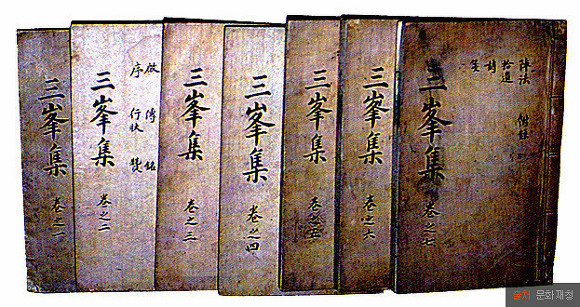 三峯集 卷之一
傳 銘
序 行狀
三峯集 卷之二
三峯集 卷之三
三峯集 卷之四
三峯集 卷之五
三峯集 卷之六
陣法 附錄
拾遺
詩
三峯集 卷之七
문화재청